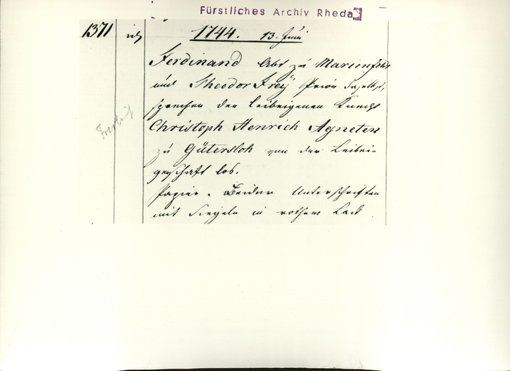 Fürstliches Archiv Rheda
1371
1744. 13. Juni
Ferdinand Abt zu Marienfeld
und Theodor Frey Prior daselbst,
sprechen den leibeigenen Knecht
Christoph Henrich Agneten
zu Gütersloh von der Leibei-
genschaft los.
Papier. Beider Unterschriften
mit Siegeln in rothem Lack.